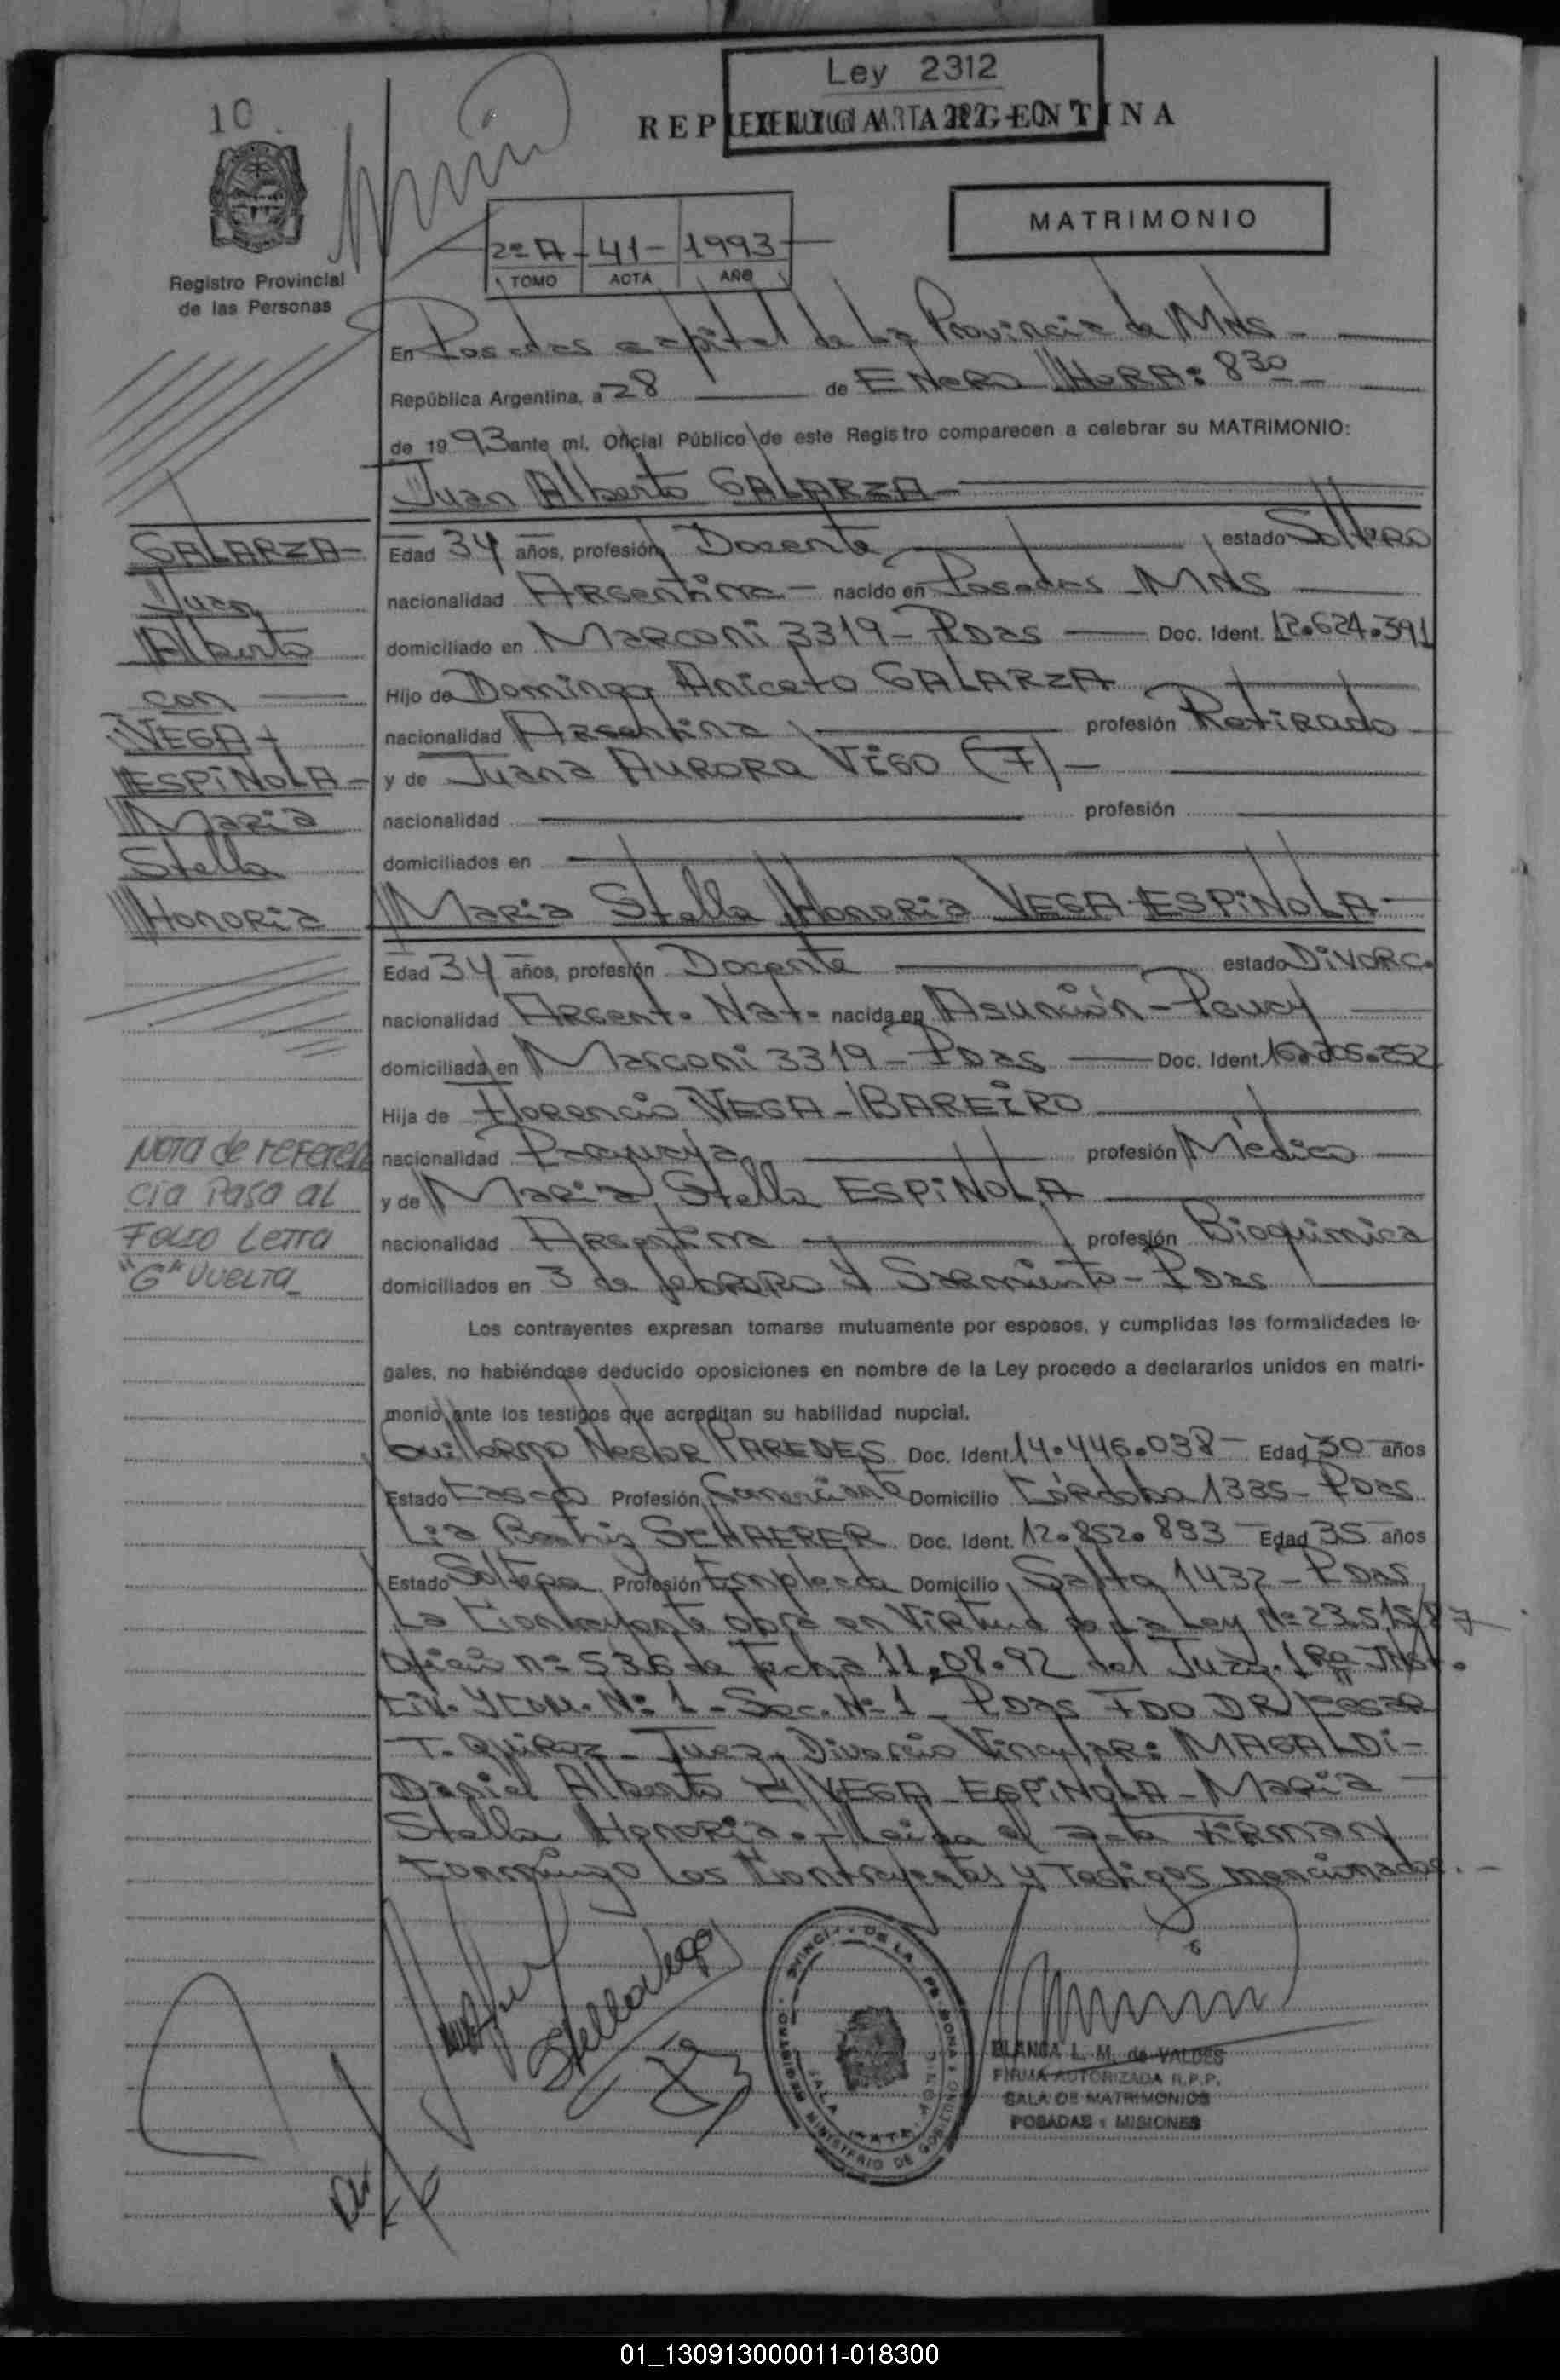 10
Ley 2312
REPUBLICA ARGENTINA
Registro Provincial
de las Personas
2º A - 41 - 1993
TOMO ACTA AÑO
MATRIMONIO
En Posadas capital de la Provincia de Mnes -
República Argentina, a 28 de Enero Hora: 8 30
de 19 93 ante mí, Oficial Público de este Registro comparecen a celebrar su MATRIMONIO:
Juan Alberto GALARZA -
GALARZA -
Juan
Alberto
con
VEGA
ESPINOLA -
Maria
Stella
Honoria
Edad 34 años, profesión Docente estado Soltero
nacionalidad Argentina - nacido en Posadas Mnes
domiciliado en Marconi 3319 - Pdas Doc. Ident. 12.624.391
Hijo de Domingo Aniceto GALARZA
nacionalidad Argentina profesión Retirado
y de Juana Aurora Vigo (F) -
nacionalidad profesión
domiciliados en
Maria Stella Honoria VEGA ESPINOLA -
Edad 34 años, profesión Docente estado Divorc.
nacionalidad Argent. Nat. nacida en Asunción - Pguay
domiciliada en Marconi 3319 - Pdas Doc. Ident.
Hija de Florencio VEGA - BAREIRO
nacionalidad Paraguaya profesión Médico
y de Maria Stella ESPINOLA
nacionalidad Argentina profesión Bioquímica
domiciliados en 3 de febrero y Sarmiento - Pdas
NOTA de referen
cia Pasa al
Folio Letra
"G" vuelta
Los contrayentes expresan tomarse mutuamente por esposos, y cumplidas las formalidades le-
gales, no habiéndose deducido oposiciones en nombre de la Ley procedo a declararlos unidos en matri-
monio ante los testigos que acreditan su habilidad nupcial.
Guillermo Nestor PAREDES Doc. Ident. 14.446.038 - Edad 30 años
Estado Casado Profesión Comerciante Domicilio Córdoba 1385 - Pdas
Lia Beatriz SCHAERER Doc. Ident. 12.852.893 - Edad 35 años
Estado Soltera Profesión Empleada Domicilio Salta 1432 - Pdas
La Contrayente obra en Virtud de la Ley Nº 23.515/87
Oficio nº 536 de fecha 11.08.92 del Juzg. 1ra Inst.
Civ. y Com. Nº 1 - Sec. Nº 1 - Pdas FDO DR Cesar
T. Quiroz - Juez. Divorcio Vincular: MAGALDI -
Daniel Alberto c/ VEGA ESPINOLA - Maria
Stella Honoria. - Leida el acta firman
conmigo los Contrayentes y testigos mencionados. -
Stella Vega
BLANCA L. M. de VALDES
FIRMA AUTORIZADA R.P.P.
SALA DE MATRIMONIOS
POSADAS - MISIONES
01_130913000011-018300